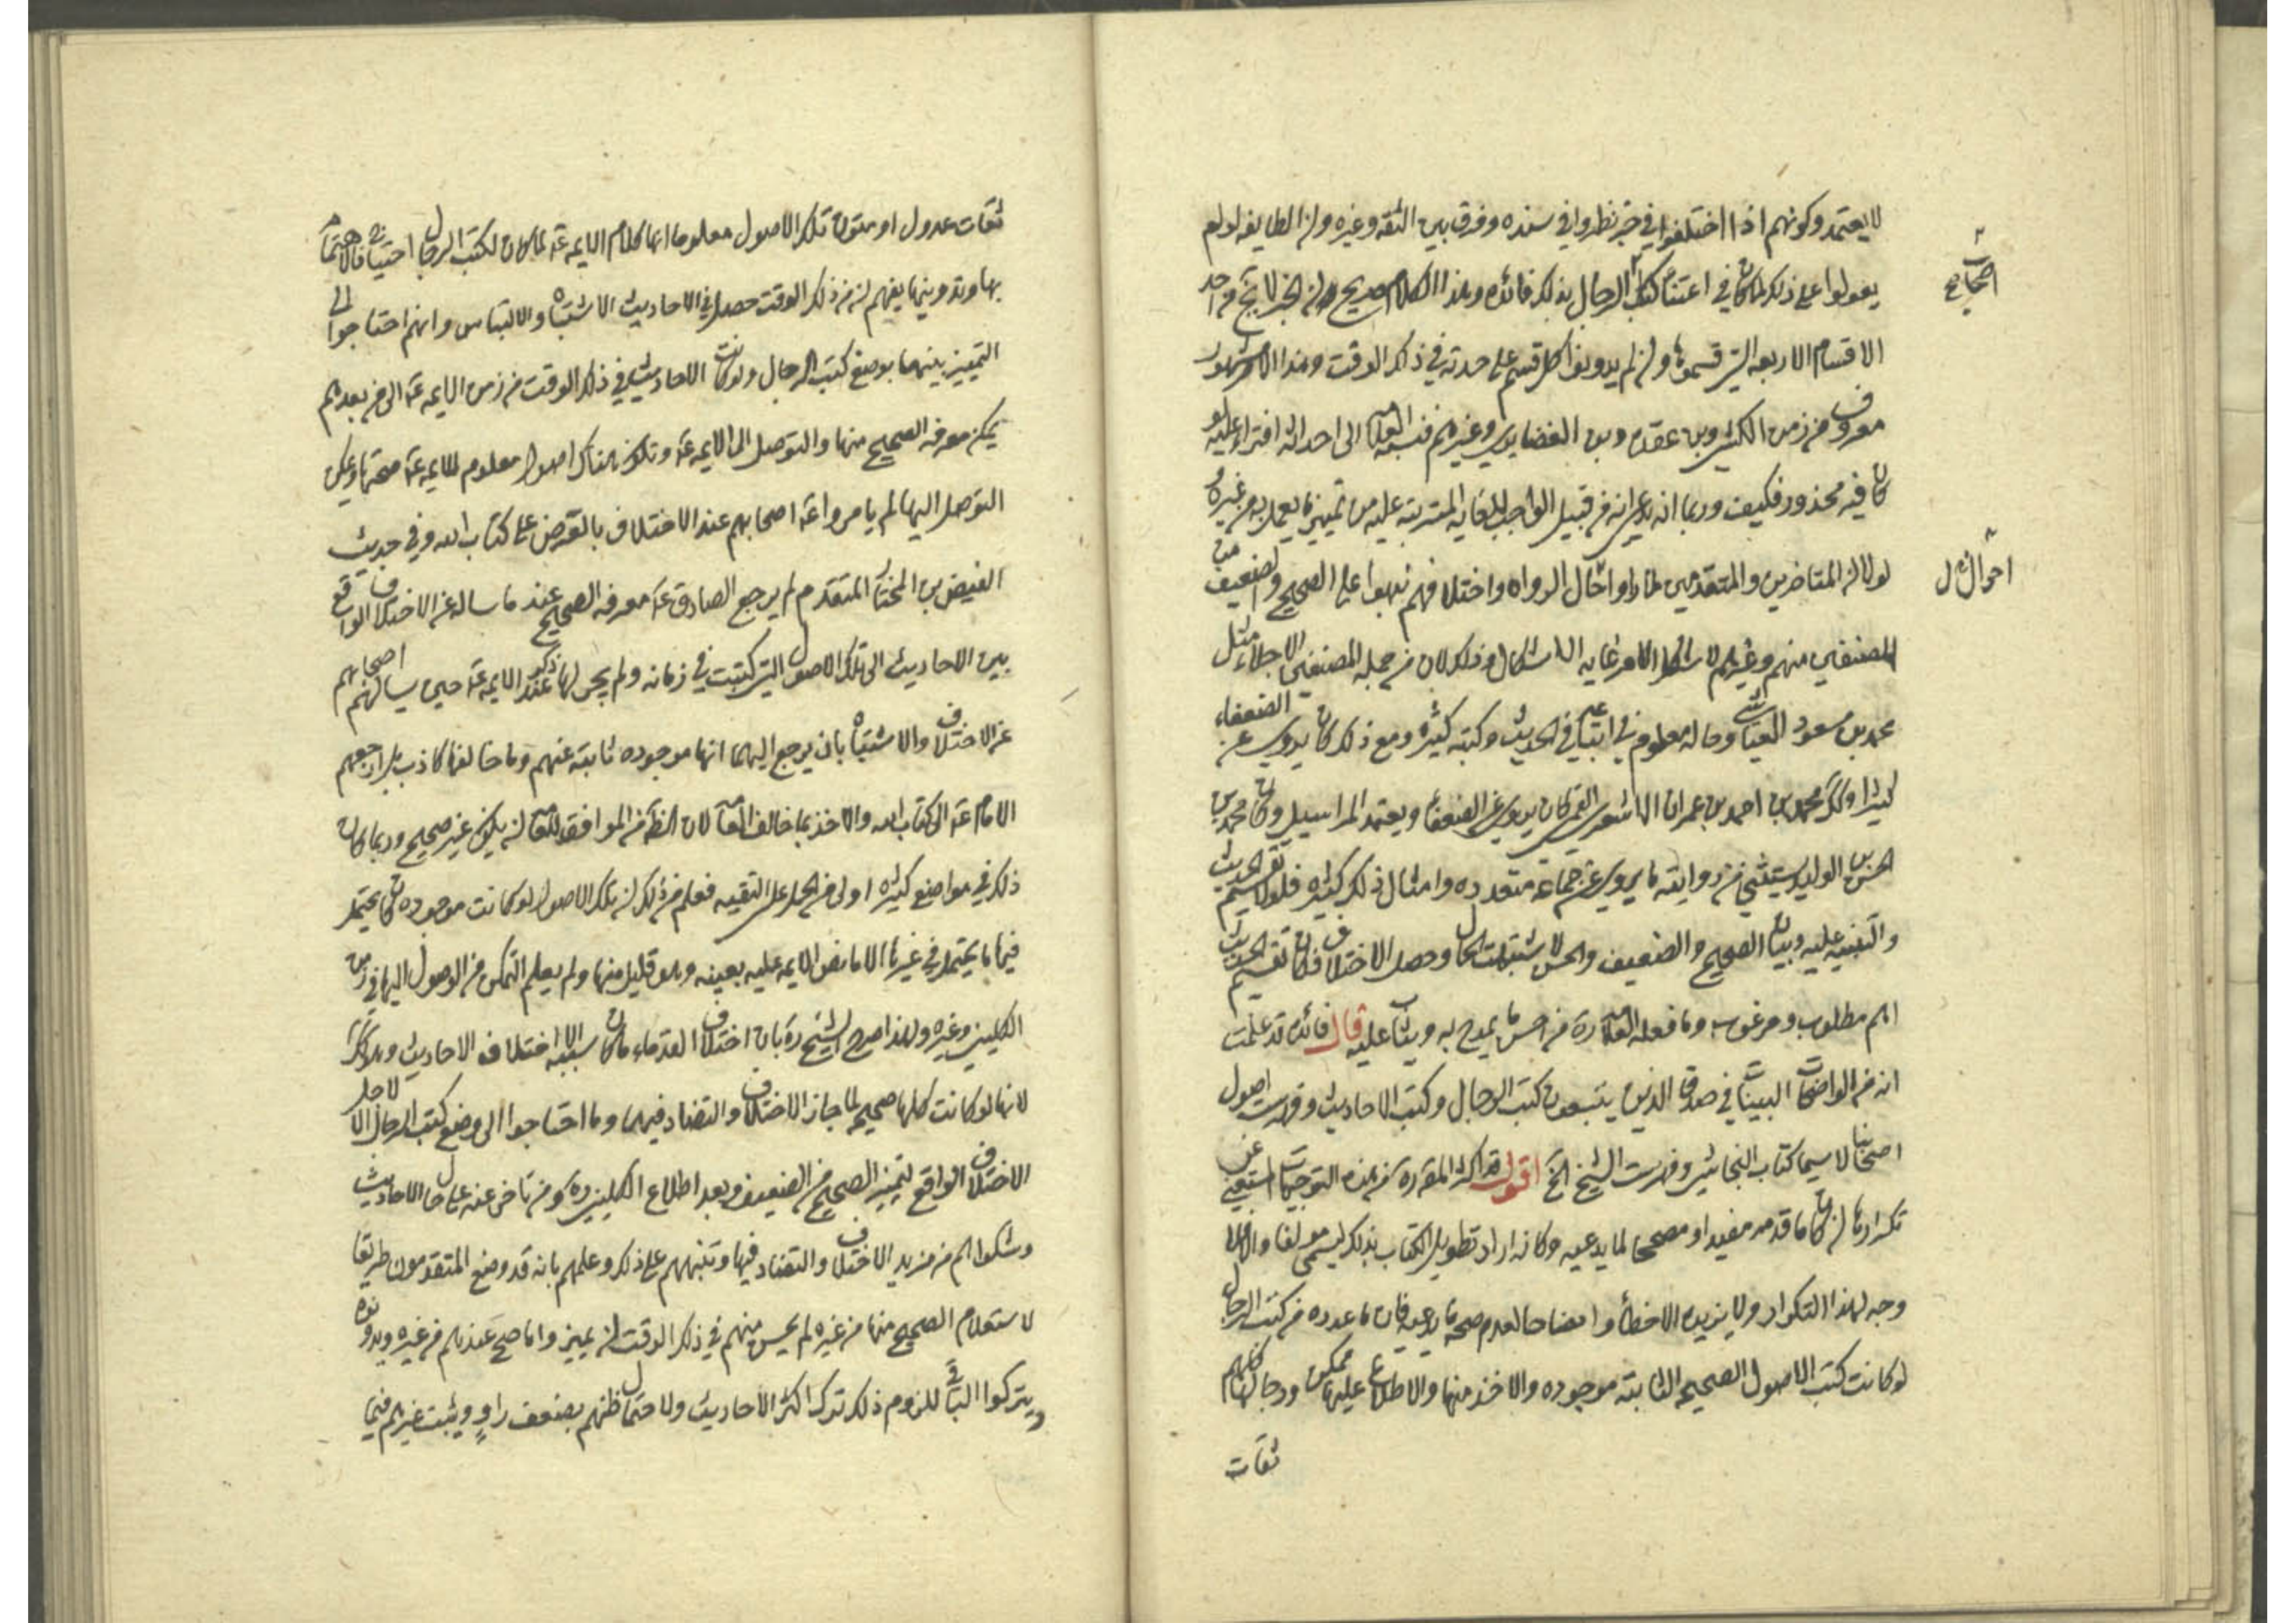 لا يعتمد وكونهم اذا اختلفوا في خبر نظروا في سنده وفرق بين الثقه وغيره ولن الطايفه لو لم
يعولوا على ذلك لما كان في اعتناء كتب الرجال بذلك فائده وهذا الكلام صريح لن الخبر لا يخ من احد
الاقسام الاربعه التي قسموها ولن لم يدونوا كل قسم على حدته في ذلك الوقت وهذا الامر مشهور
معروف من زمن الكشي وبن عقده وبن الغضايري وغيرهم فنسبه العلامه الى احداثه افتراء عليه ولو
كان فيه محذور فكيف وربما انه يدعي انه من قبيل الواجب للغايه المترتبه عليه من تمييز ما يعمل به من غيره و
لولا لن المتاخرين والمتقدمين لما راوا حال الرواه واختلافهم نبهوا على الصحيح والضعيف من
المصنفين منهم وغيرهم لاشكل الامر غايه الاشكال وذلك لان من جمله المصنفين الاجلاء مثل
محمد بن مسعود العياشي وحاله معلوم في اتباعه في الحديث وكتبه كثيره ومع ذلك كان يروي عن الضعفاء
كثيرا وكذلك محمد بن احمد بن عمران الاشعري القمي كان يروي عن الضعفاء ويعتمد المراسيل وكان محمد بن
الحسن بن الوليد يستثني من روايته ما يرويه عن جماعة متعدده وامثال ذلك كثيره فلولا تقسيم الحديث
والتنبيه عليه وبيان الصحيح والضعيف والحسن لاشتبهت الحال وحصل الاختلاف فكان تقسيم الحديث
اهم مطلوب ومرغوب وما فعله العلامه ره من احسن ما يمدح به ويثاب عليه قال فائده قد علمت
انه من الواضحات البينات في صدق الذين يتبعون كتب الرجال وكتب الاحاديث وفهرست اصول
اصحابنا لا سيما كتاب النجاشي وفهرست الشيخ الخ اقول قد اكثر المقرره من هذه التوجيهات المستغني عن
تكرارها لن كان ما قدمه مفيدا او مصححا لما يدعيه وكانه اراد تطويل الكتاب بذلك ليسمى مولفا والا فلا
وجه لهذا التكرار ولا يزيده الا خطأ وافضاحا لعدم صحه ما يدعيه فان ما عدده من كتب الرجال
لو كانت كتب الاصول الصحيحه الثابته موجوده والاخذ منها والاطلاع عليها ممكن ورجالها كلهم
ثقات
اصحاب
احوال
ثقات عدول او متون تلك الاصول معلوما انها كلام الايمه ع لما كان لكتب الرجال احتياج فالاهتمام
بها وتدوينها يفهم لن من ذلك الوقت حصل في الاحاديث الاشتباه والالتباس وانهم احتاجوا الى
التمييز بينهما بوضع كتب الرجال ولو كانت الاحاديث في ذلك الوقت من زمن الايمه ع الى من بعدهم
يمكن معرفه الصحيح منها والتوصل الى الايمه ع وتكون هناك اصول معلوم للايمه ع صحتها ويمكن
التوصل اليها لم يامروا ع اصحابهم عند الاختلاف بالعرض على كتاب الله وفي حديث
الفيض بن المختار المتقدم لم يرجع الصادق ع معرفه الصحيح عند ما ساله عن الاختلاف الواقع
بين الاحاديث الى تلك الاصول التي كتبت في زمانه ولم يجر لها ذكر عند الايمه ع حين يسالهم اصحابهم
عن الاختلاف والاشتباه بان يرجع اليها انها موجوده ثابته عنهم وما خالفها كاذب بل ارجعهم
الامام ع الى كتاب الله والاخذ بما خالف العامه لان الظاهر من الموافقه للعامه لن يكون غير صحيح وربما كان
ذلك في مواضع كثيره اولى من الحمل على التقيه فعلم من ذلك لن تلك الاصول لو كانت موجوده كان يحتمل
فيها ما يحتمل في غيرها الا ما نص الايمه عليه بعينه وهو قليل منها ولم يعلم التمكن من الوصول اليها في زمن
الكليني وغيره ولهذا صرح الشيخ ره بان اختلاف القدماء ما كان سببه الا اختلاف الاحاديث
لانها لو كانت كلها صحيحه لما جاز الاختلاف والتضاد فيها وما احتاجوا الى وضع كتب الرجال الا لاجل
الاختلاف الواقع لتمييز الصحيح من الضعيف وبعد اطلاع الكليني ره ومن تاخر عنه على حال الاحاديث
وشكواهم من مزيد الاختلاف والتضاد فيها وتنبههم على ذلك وعلمهم بانه قد وضع المتقدمون طريقا
لاستعلام الصحيح منها من غيره لم يحسن منهم في ذلك الوقت لن يميزوا ما صح عندهم من غيره ويدونوه
ويتركوا الباقي للزوم ذلك ترك اكثر الاحاديث ولاحتمال ظنهم بضعف راو ويثبت غيرهم فيما